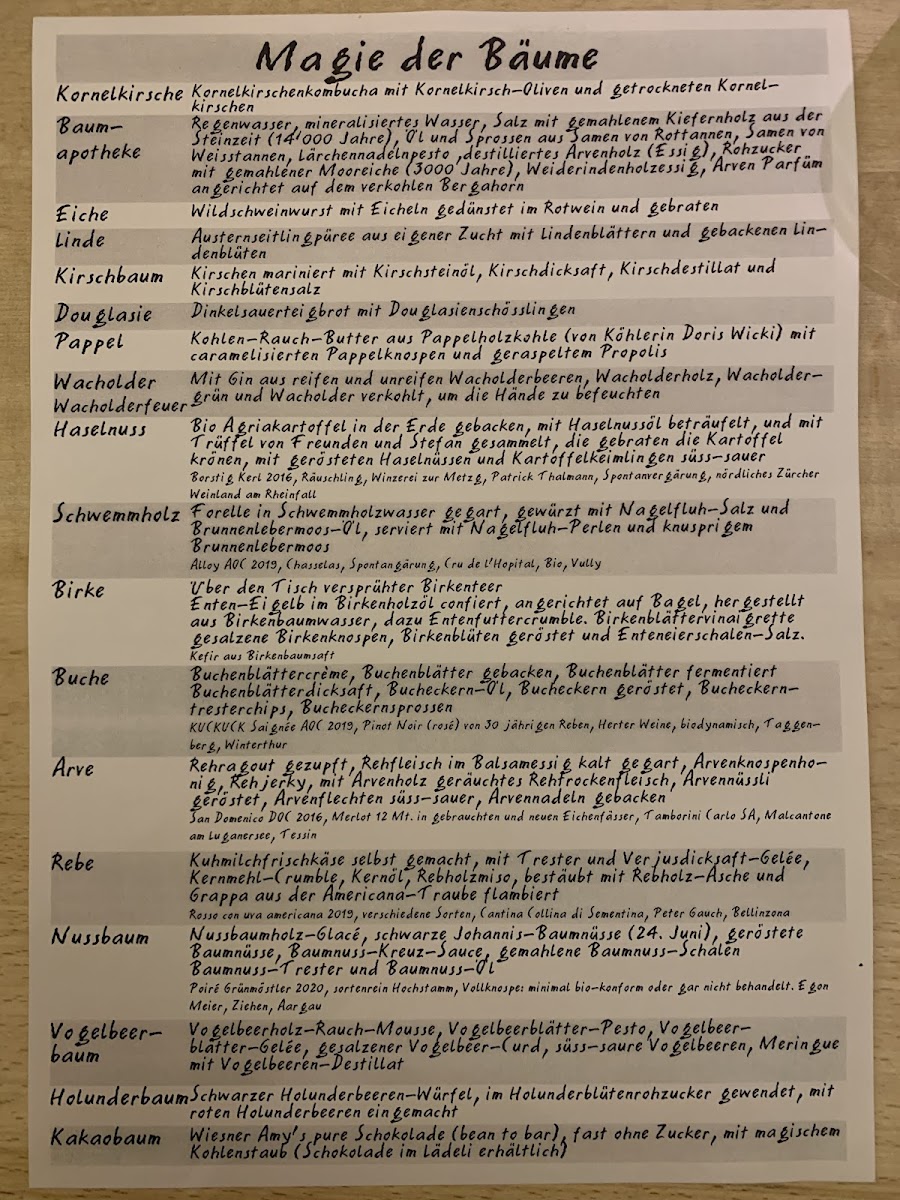 Magie der Bäume
Kornelkirsche Kornelkirschenkombucha mit Kornelkirsch-Oliven und getrockneten Kornel-
kirschen
Baum- Regenwasser, mineralisiertes Wasser, Salz mit gemahlenem Kiefernholz aus der
Steinzeit (14'000 Jahre), Öl und Sprossen aus Samen von Rottannen, Samen von
apotheke Weisstannen, Lärchennadelnpesto ,destilliertes Arvenholz (Essig), Rohzucker
mit gemahlener Mooreiche (3000 Jahre), Weiderindenholzessig, Arven Parfüm
angerichtet auf dem verkohlen Bergahorn
Eiche Wildschweinwurst mit Eicheln gedünstet im Rotwein und gebraten
Linde Austernseitlingpüree aus eigener Zucht mit Lindenblättern und gebackenen Lin-
denblüten
Kirschbaum Kirschen mariniert mit Kirschsteinöl, Kirschdicksaft, Kirschdestillat und
Kirschblütensalz
Douglasie Dinkelsauerteigbrot mit Douglasienschösslingen
Pappel Kohlen-Rauch-Butter aus Pappelholzkohle (von Köhlerin Doris Wicki) mit
caramelisierten Pappelknospen und geraspeltem Propolis
Wacholder Mit Gin aus reifen und unreifen Wacholderbeeren, Wacholderholz, Wacholder-
Wacholderfeuer grün und Wacholder verkohlt, um die Hände zu befeuchten
Haselnuss Bio Agriakartoffel in der Erde gebacken, mit Haselnussöl beträufelt, und mit
Trüffel von Freunden und Stefan gesammelt, die gebraten die Kartoffel
krönen, mit gerösteten Haselnüssen und Kartoffelkeimlingen süss-sauer
Borstig Kerl 2016, Räuschling, Winzerei zur Metzg, Patrick Thalmann, Spontanvergärung, nördliches Zürcher
Weinland am Rheinfall
Schwemmholz Forelle in Schwemmholzwasser gegart, gewürzt mit Nagelfluh-Salz und
Brunnenlebermoos-Öl, serviert mit Nagelfluh-Perlen und knusprigem
Brunnenlebermoos
Alloy AOC 2019, Chasselas, Spontangärung, Cru de l'Hopital, Bio, Vully
Birke Über den Tisch versprühter Birkenteer
Enten-Eigelb im Birkenholzöl confiert, angerichtet auf Bagel, hergestellt
aus Birkenbaumwasser, dazu Entenfuttercrumble. Birkenblättervinaigrette
gesalzene Birkenknospen, Birkenblüten geröstet und Enteneierschalen-Salz.
Kefir aus Birkenbaumsaft
Buche Buchenblättercrème, Buchenblätter gebacken, Buchenblätter fermentiert
Buchenblätterdicksaft, Bucheckern-Öl, Bucheckern geröstet, Bucheckern-
tresterchips, Bucheckernsprossen
KUCKUCK Saignée AOC 2019, Pinot Noir (rosé) von 30 jährigen Reben, Herter Weine, biodynamisch, Taggen-
berg, Winterthur
Arve Rehragout gezupft, Rehfleisch im Balsamessig kalt gegart, Arvenknospenho-
nig, Rehjerky, mit Arvenholz geräuchtes Rehtrockenfleisch, Arvennüssli
geröstet, Arvenflechten süss-sauer, Arvennadeln gebacken
San Domenico DOC 2016, Merlot 12 Mt. in gebrauchten und neuen Eichenfässer, Tamborini Carlo SA, Malcantone
am Luganersee, Tessin
Rebe Kuhmilchfrischkäse selbst gemacht, mit Trester und Verjusdicksaft-Gelée,
Kernmehl-Crumble, Kernöl, Rebholzmiso, bestäubt mit Rebholz-Asche und
Grappa aus der Americana-Traube flambiert
Rosso con uva americana 2019, verschiedene Sorten, Cantina Collina di Sementina, Peter Gauch, Bellinzona
Nussbaum Nussbaumholz-Glacé, schwarze Johannis-Baumnüsse (24. Juni), geröstete
Baumnüsse, Baumnuss-Kreuz-Sauce, gemahlene Baumnuss-Schalen
Baumnuss-Trester und Baumnuss-Öl
Poiré Grünmöstler 2020, sortenrein Hochstamm, Vollknospe: minimal bio-konform oder gar nicht behandelt. Egon
Meier, Ziehen, Aargau
Vogelbeer- Vogelbeerholz-Rauch-Mousse, Vogelbeerblätter-Pesto, Vogelbeer-
baum blätter-Gelée, gesalzener Vogelbeer-Curd, süss-saure Vogelbeeren, Meringue
mit Vogelbeeren-Destillat
Holunderbaum Schwarzer Holunderbeeren-Würfel, im Holunderblütenrohzucker gewendet, mit
roten Holunderbeeren eingemacht
Kakaobaum Wiesner Amy's pure Schokolade (bean to bar), fast ohne Zucker, mit magischem
Kohlenstaub (Schokolade im Lädeli erhältlich)